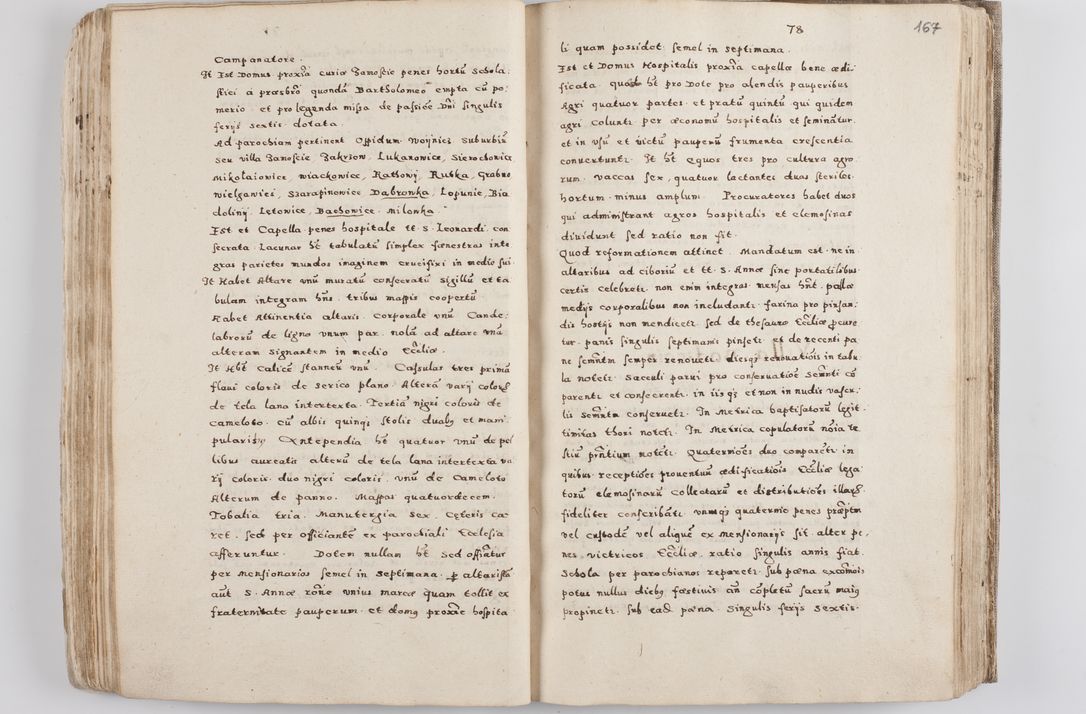 Campanatore.
It Est Domus proxīa curiæ Zanoscie penes hortū Schola:
stici a præsbro quondā Bartholomeo empta cū po:
merio. et pro legenda missa de passiōe Dnī singulis
ferijs sextis dotata.
Ad parochiam pertinent Oppidum Woijnicz Suburbiū
seu villa Zanoscie Zakrzow, Lukanowice, Sierochowice
Mikolaiowice, wiackowice, Ratkowy, Rudka, Grabno
wielgawies, Szarapinowice Dabronka, Lopunie, Bia
doliny. Letowice, Dachowice. Milonka.
Est et Capella penes hospitale tt. S. Leonardi. con
secrata. Lacunar ht̄ tabulatū simplex fænestras inte
gras parietes mundos imaginem crucifixi in medio sui
It Habet Altare vnū muratū consecratū sigillū et ta
bulam integram hn̄s. tribus mappis coopertū.
Habet Attinentia altaris. Corporale vnū. Cande:
labrorū de ligno vnum par. nolā ad altare vnā
alteram signantem in medio Eccliæ.
It Hbt̄ Calicē stanneū vnū. Casulas tres primā
flaui coloris de serico plano. Alterā varij coloris
de tela lana intertexta. Tertiā nigri coloris de
cameloto. cū albis quinqs stolis duabs et mani
pularibs Antependia ht̄ quatuor vnū de pel
libus aureatis alterū de tela lana intertexta va
rij coloris. duo nigri coloris. vnū de cameloto
Alterum de panno. Mappas quatuordecem.
Tobalia tria. Manutergia sex. Cęteris ca
ret. sed per officiantē ex parochiali Ecclesia
afferuntur. Dotem nullam ht̄ sed offīatur
per mensionarios semel in septimana. p altaristā
aut S. Annæ rōne vnius marcæ quam tollit ex
fraternitate pauperum. et domq proxīæ hospita
78 167
li quam possidet semel in septimana.
Est et Domus Hospitalis proxīa capellæ bene ædi
ficata quæ ht̄ pro Dote pro alendis pauperibus
Agri quatuor partes. et pratū quintū qui quidem
agri coluntr per œconomū hospitalis et seminātur.
et in vsū et victū pauperū frumenta crescentia
conuertuntr. It ht̄ equos tres pro cultura agro
rum. vaccas sex, quatuor lactantes duas steriles.
hortum. minus amplum. Procuratores habet duos
qui administrant agros hospitalis et elemosinas
diuidunt sed ratio non fit.
Quod reformationem attinet. Mandatum est. ne in
altaribus ad ciboriū et tt. S. Annæ sine portatilibus
certis celebretr. non enim integras mensas hn̄t. pallæ
medijs corporalibus non includantr. farina pro pinsan:
dis hostijs non mendicetr. sed de thesauro Eccliæ procure
tur. panis singulis septimanis pinsetr. et de recenti pa
ne semītm semper renouetr. diesqs renouatiōis in tabu
la notetr. Sacculi parui pro conseruatiōe Semīti cō
parentr et consecrentr. in iis qs et non in nudis vascu:
lis Semītm conseruetr. In Metrica baptisatorū legit.
timitas thori notetr. In Metrica copulatorū nōia te
stiū prntium notetr. Quaterniōes duo comparētr in
quibus receptiōes prouentuū ædificatiōis Eccliæ lega
torū elemosinarū collectarū et distributiōes illarū
fideliter conscribātr. vnusqs quaternio penes præptm
vel custodē vel aliquē ex mensionarijs sit. alter pe,
nes victricos Eccliæ. ratio singulis annis fiat.
Schola per parochianos reparetr. sub pæna excōiois
potus nullus diebs fœstiuis an̄ cōpletū sacrū maiq
propinetr. sub ead pæna. Singulis ferijs sextis.